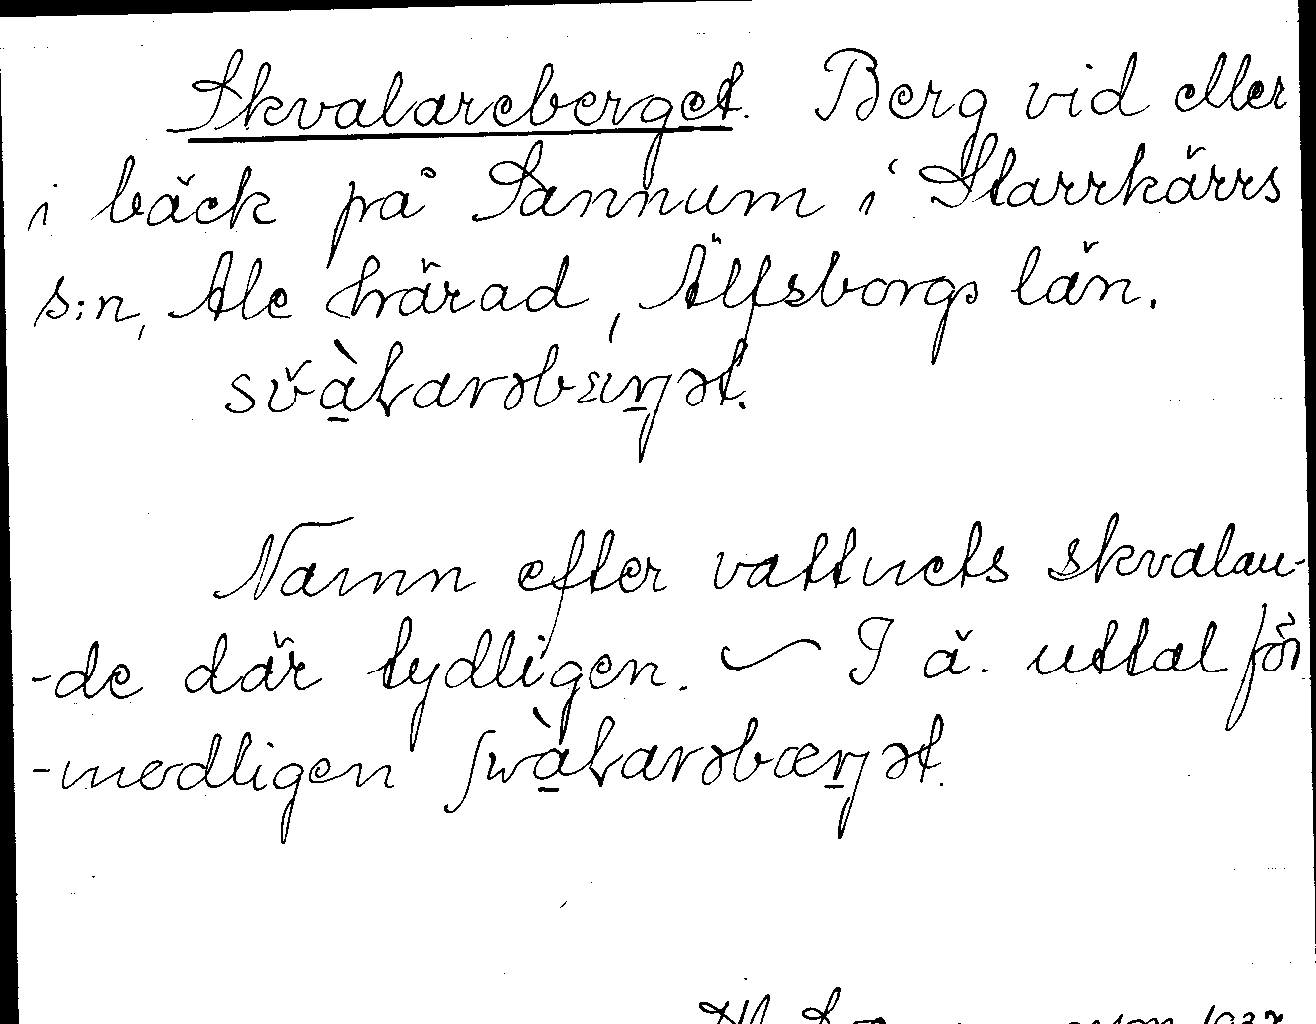 Skvalareberget. Berg vid eller
i bäck på Sannum i Starrkärrs
s:n, Ale härad, Älfsborgs län.
Namn efter vattnets skvalan-
-de där tydligen. ~ I ä. uttal för-
-modligen